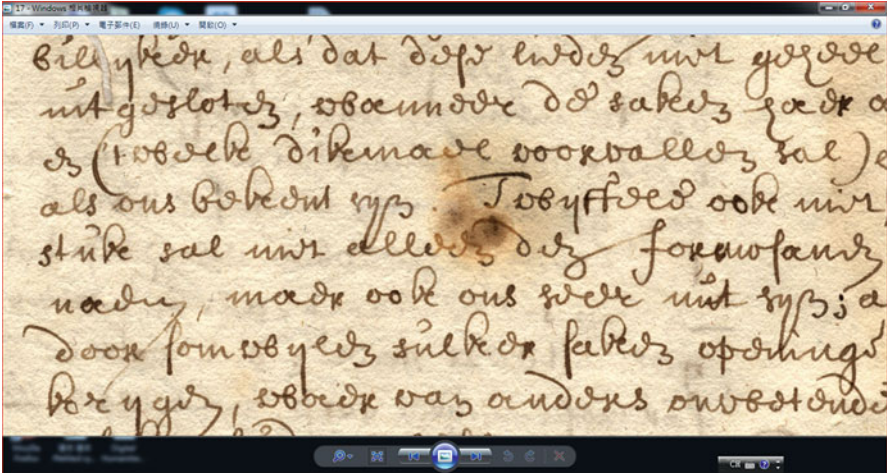 17 - Windows 相片檢視器
檔案(F) 列印(P) 電子郵件(E) 燒錄(U) 開啟(O)
billyker, als dat dese lieden niet geheel
uitgesloten, wanneer de saken haer
en (t welke dikemael voorvallen sal)
als ons bekent syn. Twyffele ooke niet,
stuke sal niet alleen den formosanen
maer ooke ons seer nut syn;
door somwylen sulker saken openinge
krygen, waer van anders onwetende
CH